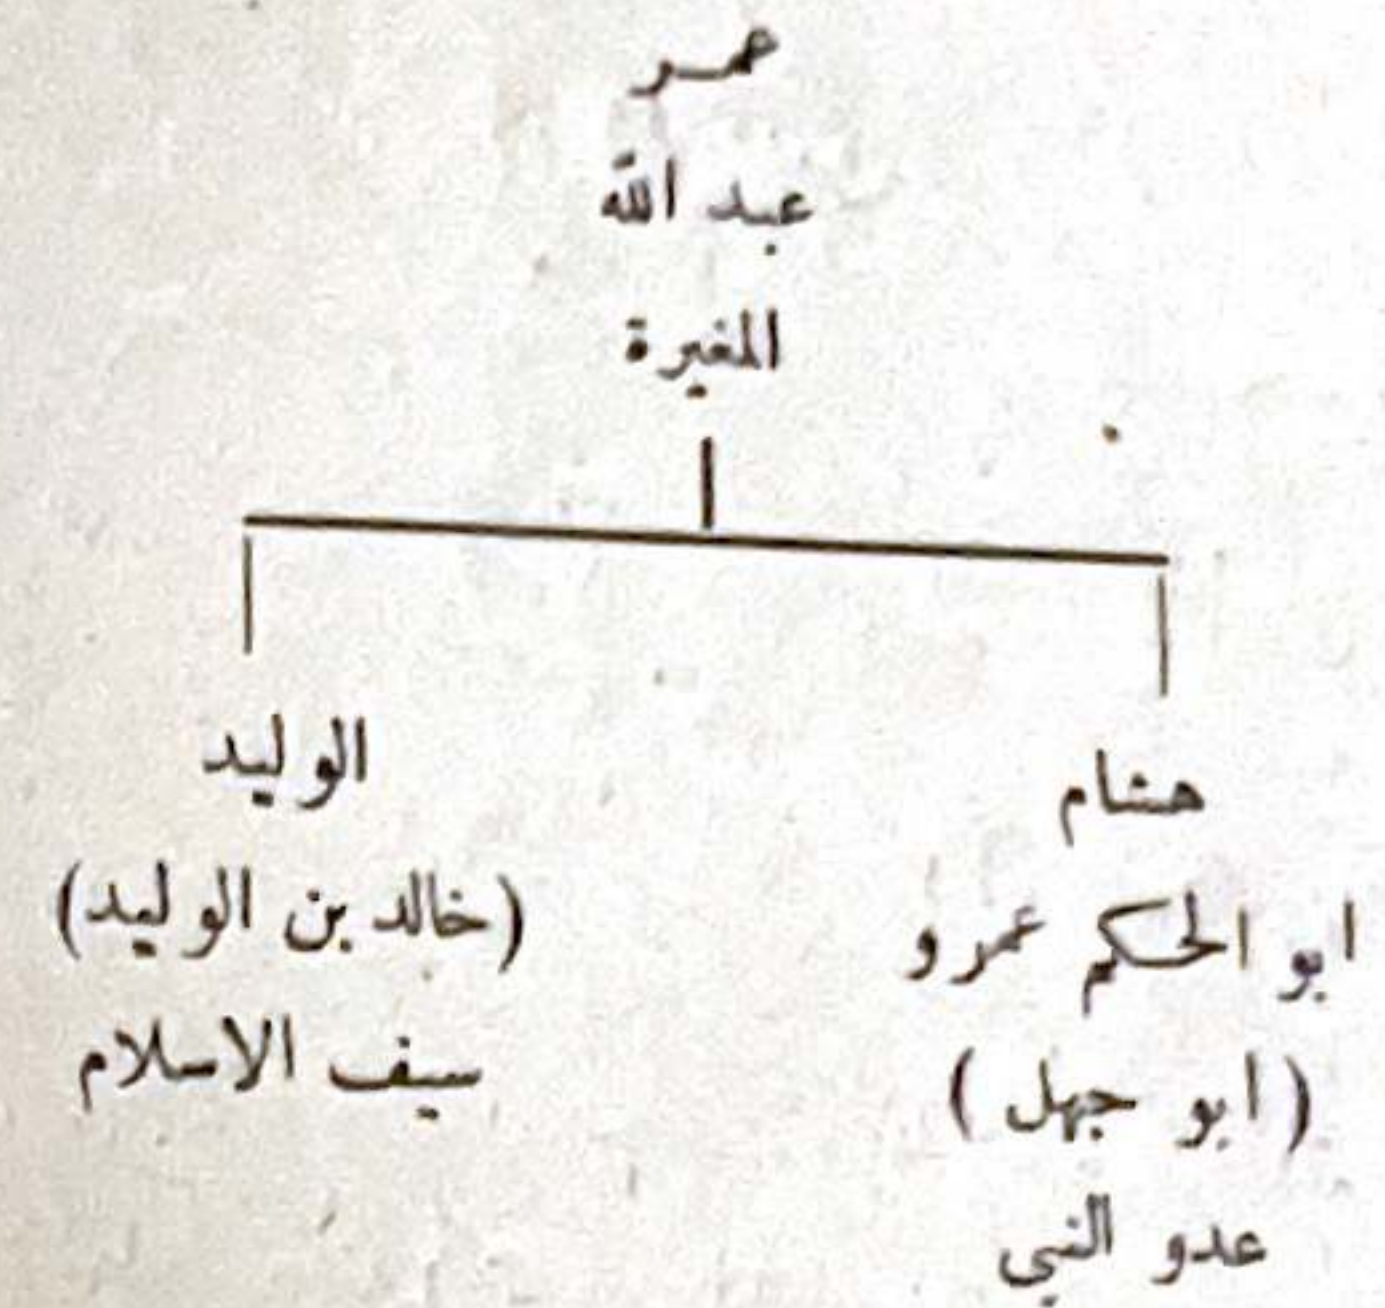 عمر
عبد الله
المغيرة
هشام
ابو الحكم عمرو
( ابو جهل )
عدو النبي
الوليد
(خالد بن الوليد)
سيف الاسلام